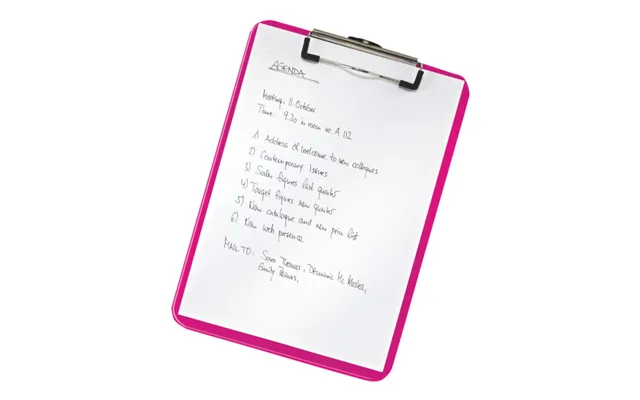 AGENDA
Meeting: 11. October
Time: 9.30 in room no. A 112
1) Address of welcome to new collegues
2) Contemporary issues
3) Sales figures last quarter
4) Target figures new quarter
5) New catalogue and new price list
6) New web presence
MAIL TO: Sara , Dominic Mc
Emily